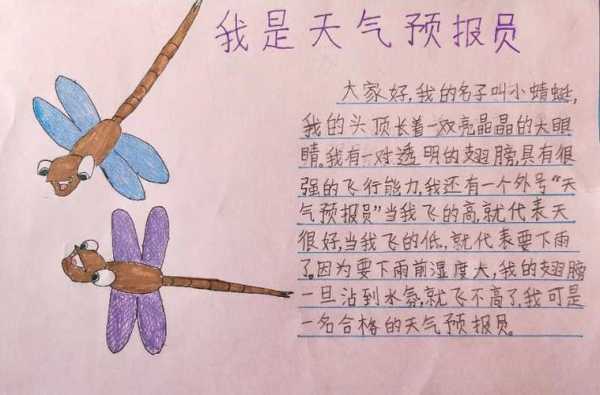 我是天气预报员
大家好,我的名子叫小蜻蜓,
我的头顶长着一双亮晶晶的大眼
睛。我有一对透明的翅膀,具有很
强的飞行能力,我还有一个外号“天
气预报员”当我飞的高,就代表天
很好,当我飞的低,就代表要下雨
了。因为要下雨前湿度大,我的翅膀
一旦沾到水氛,就飞不高了,我可是
一名合格的天气预报员。